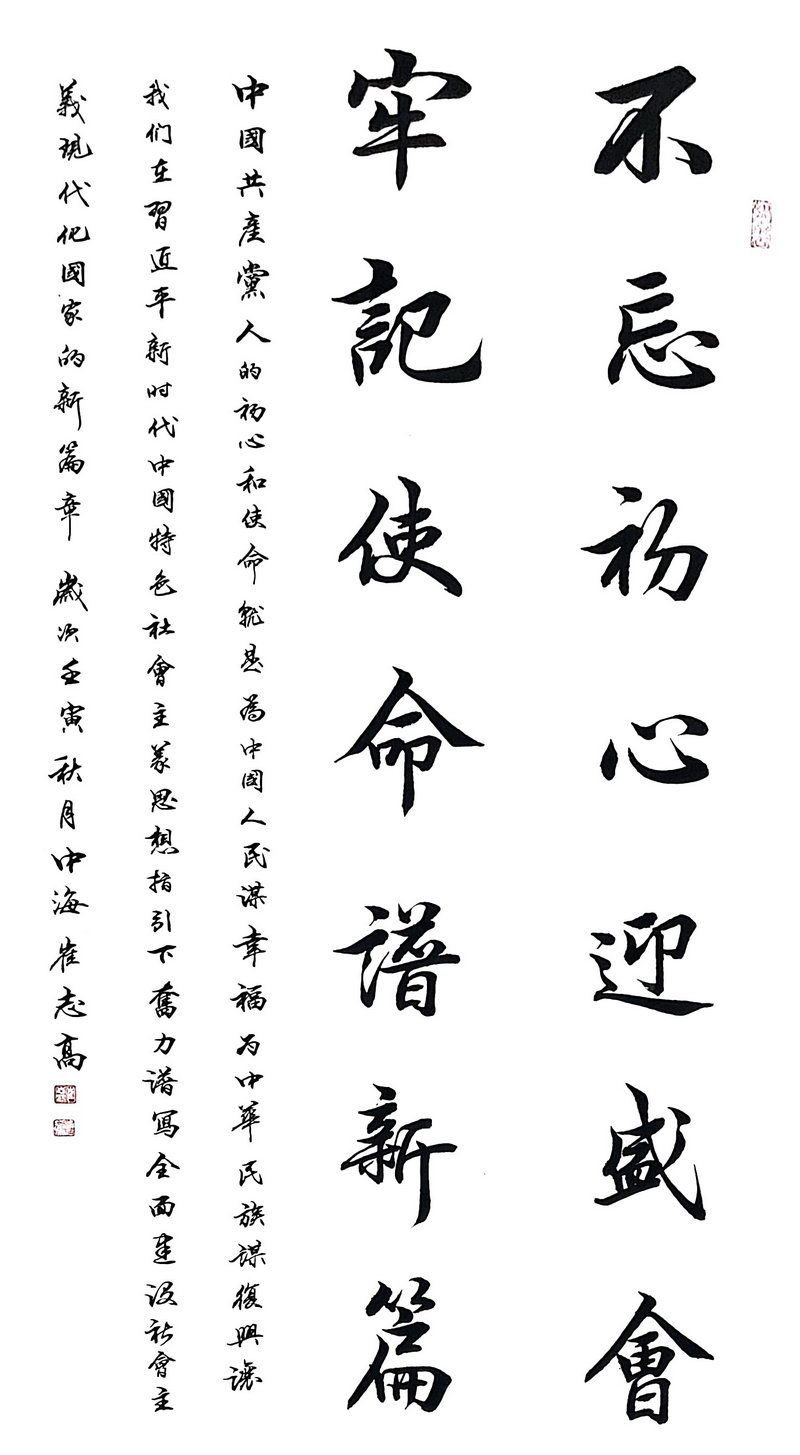 不忘初心迎盛會
牢記使命譜新篇
中國共產黨人的初心和使命就是為中國人民謀幸福为中華民族謀復興讓
我们在習近平新时代中國特色社會主義思想指引下奮力譜寫全面建设社會主
義現代化國家的新篇章 歲次壬寅秋月中海崔志高